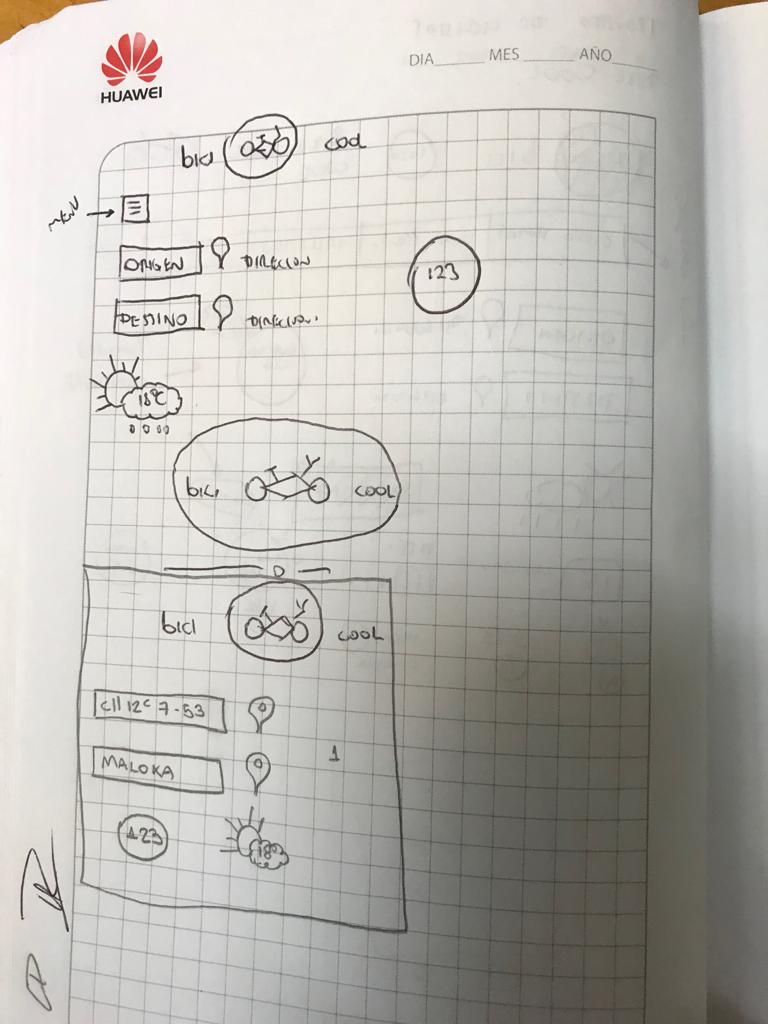 HUAWEI
DIA MES AÑO
bici cool
MENU
ORIGEN DIRECION
123
DESTINO DIRECION.
18°C
bici COOL
D
bici COOL
Cll 12c 7-53
MALOKA
1
123
18°